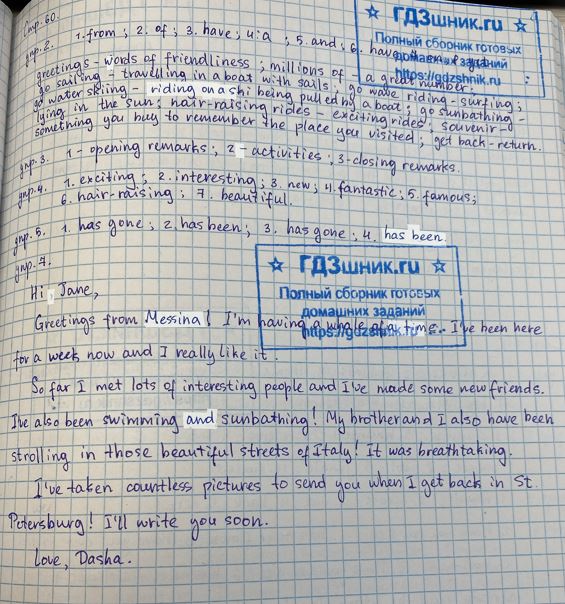 Стр. 60.
упр. 2. 1. from; 2. of; 3. have; 4: a; 5. and; 6. have
greetings - words of friendliness; millions of - a great number;
go sailing - travelling in a boat with sails; go wave riding - surfing;
go water skiing - riding on a ski being pulled by a boat; go sunbathing -
lying in the sun; hair-raising rides - exciting rides; souvenir -
something you buy to remember the place you visited; get back - return.
упр. 3. 1 - opening remarks; 2 - activities; 3 - closing remarks.
упр. 4. 1. exciting; 2. interesting; 3. new; 4. fantastic; 5. famous;
6. hair-raising; 7. beautiful.
упр. 5. 1. has gone; 2. has been; 3. has gone; 4. has been.
упр. 7.
Hi, Jane,
Greetings from Messina! I'm having a whale of a time. I've been here
for a week now and I really like it.
So far I met lots of interesting people and I've made some new friends.
I've also been swimming and sunbathing! My brother and I also have been
strolling in those beautiful streets of Italy! It was breathtaking.
I've taken countless pictures to send you when I get back in St.
Petersburg! I'll write you soon.
Love, Dasha.
ГДЗшник.ru
Полный сборник готовых
домашних заданий
https://gdzshnik.ru
ГДЗшник.ru
Полный сборник готовых
домашних заданий
https://gdzshnik.ru